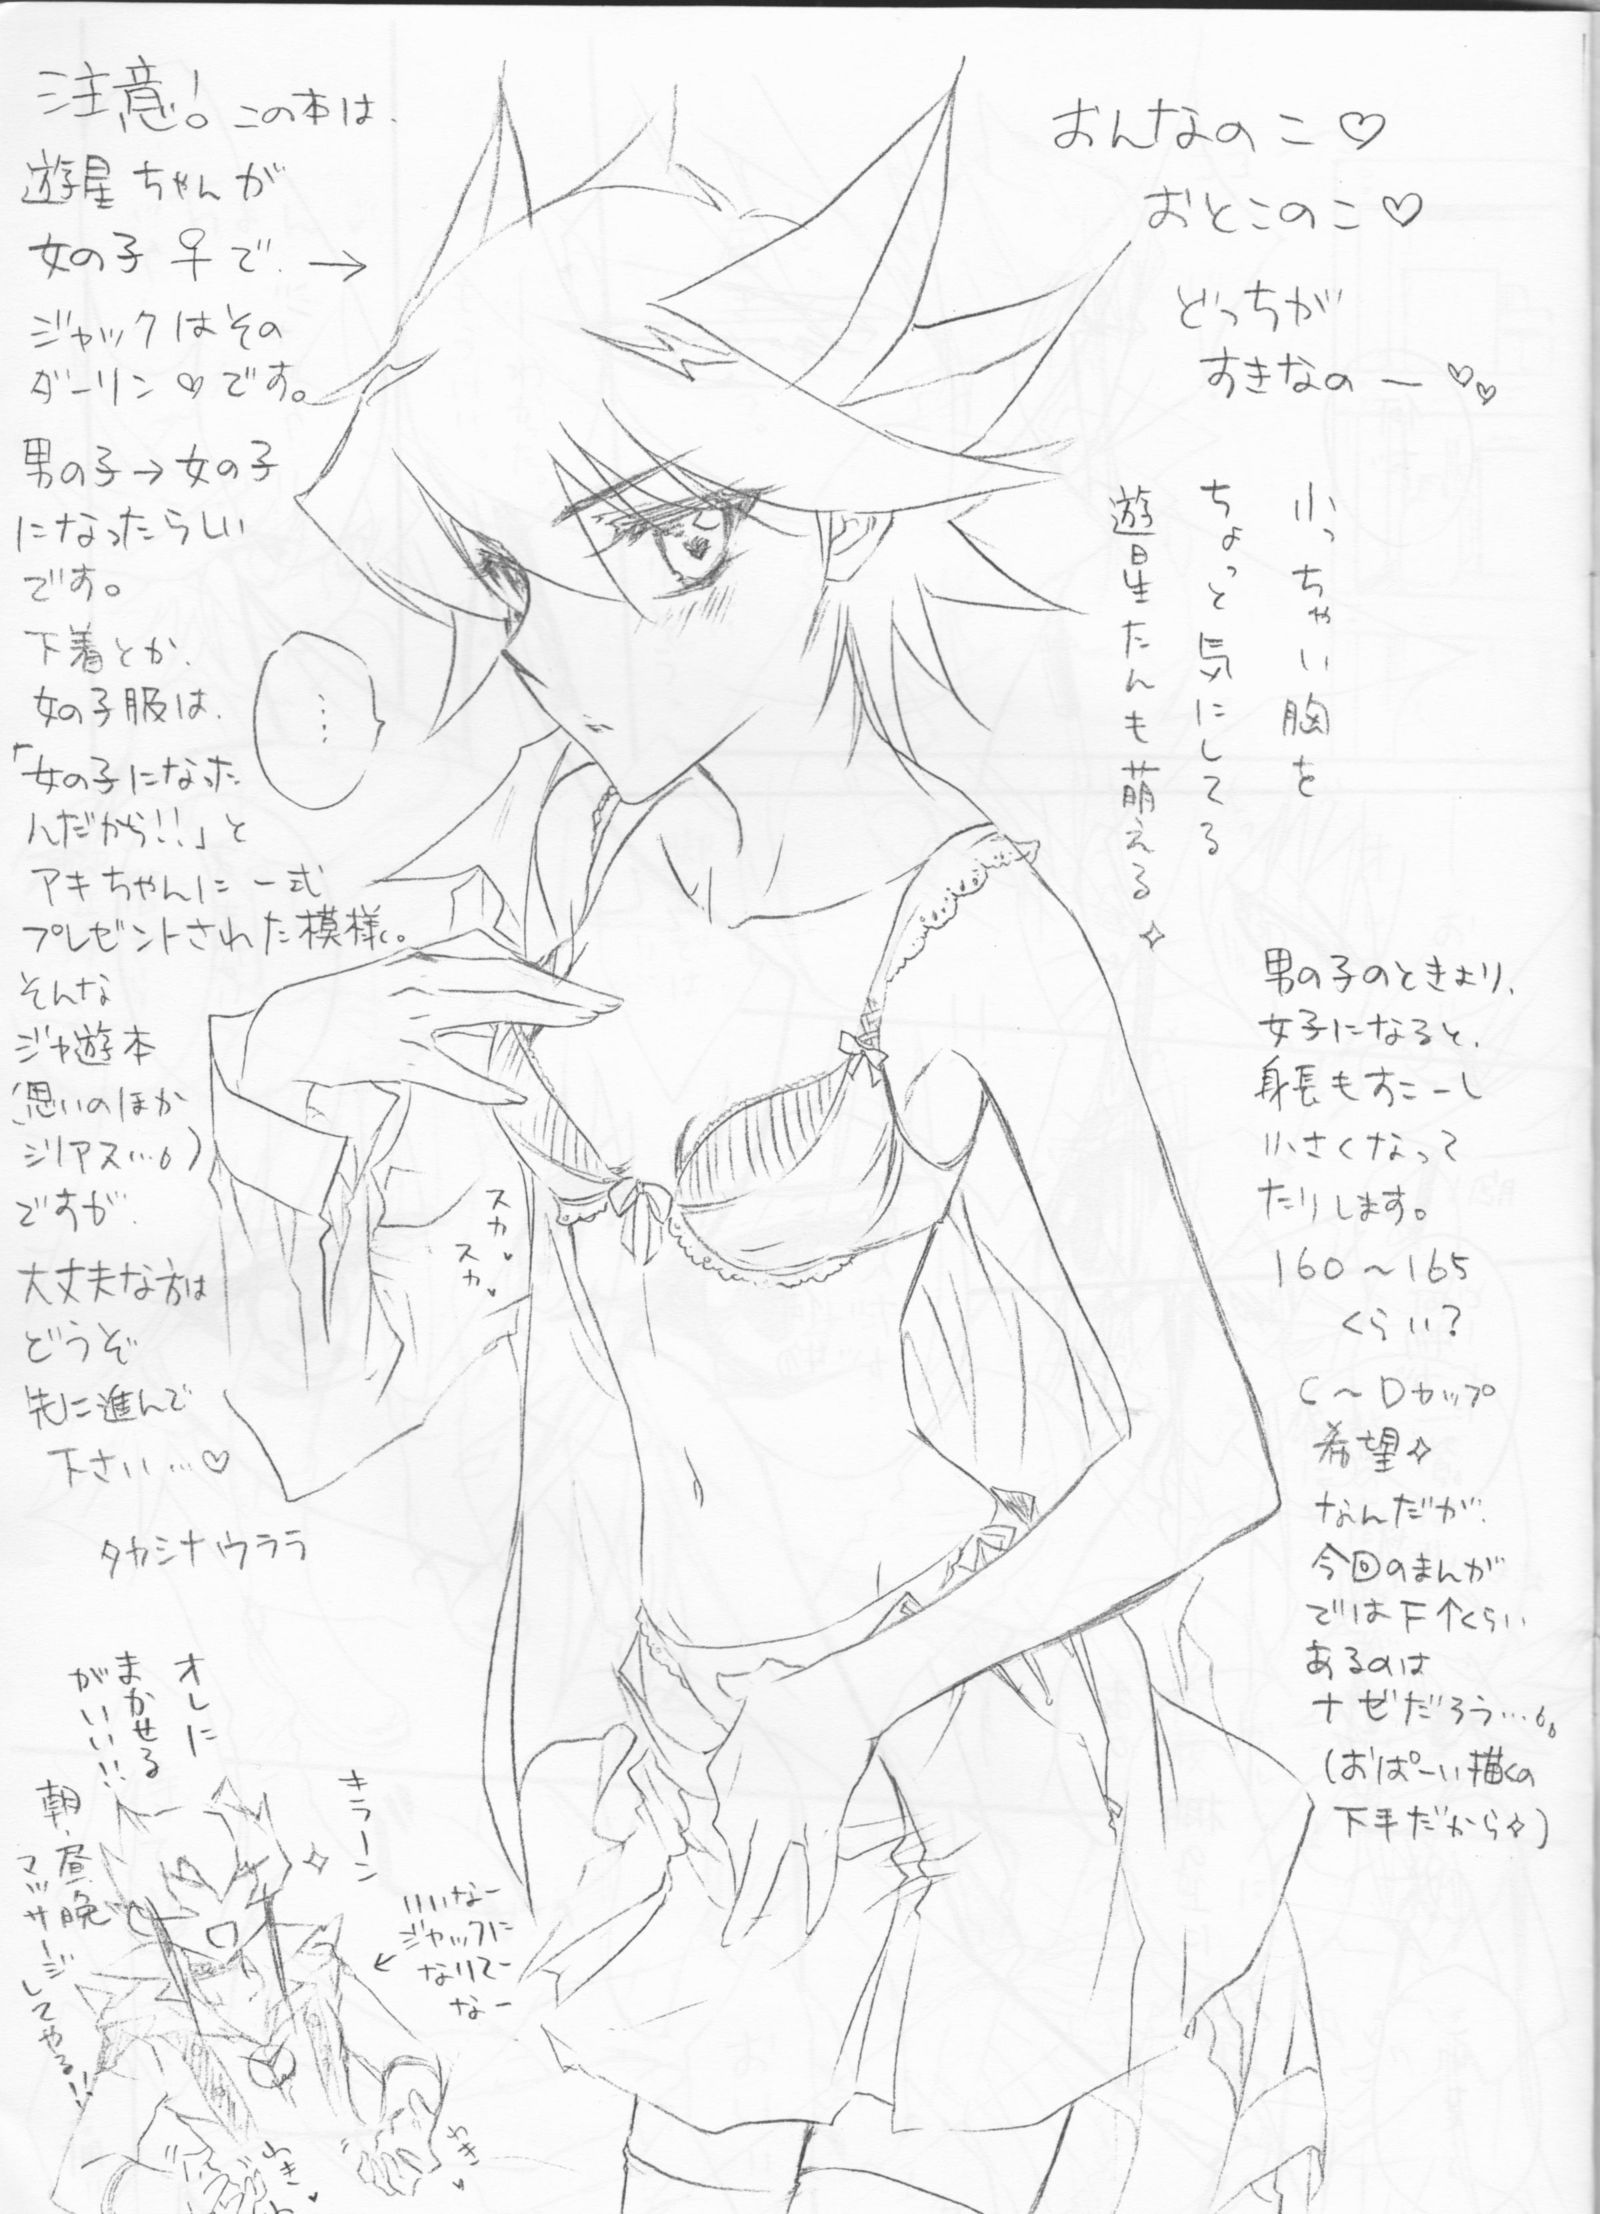 注意!。この本は、
遊星ちゃんが
女の子♀で、→
ジャックはその
ダーリン♡です。
男の子→女の子
になったらしい
です。
下着とか、
女の子服は、
「女の子になった
んだから!!」と
アキちゃんに一式
プレゼントされた模様。
そんな
ジャ遊本
(思いのほか
シリアス…)
ですが、
大丈夫な方は
どうぞ
先に進んで
下さい…♡
タカシナウララ
おんなのこ♡
おとこのこ♡
どっちが
すきなのー♡♡
小っちゃい胸を
ちょっと気にしてる
遊星たんも萌える✧
…
男の子のときより、
女子になると、
身長もすこーし
小さくなって
たりします。
160〜165
くらい?
C〜Dカップ
希望✧
なんだが、
今回のまんが
では下↑くらい
あるのは
ナゼだろう…
(おぱーい描くの
下手だから✧)
スカ♥
スカ♥
オレに
まかせる
がいい!!
朝、昼、晩
マッサージ
してやる!!
キラーン
いいなー
ジャックに
なりてー
なー
←
わき♥
わき♥
わ